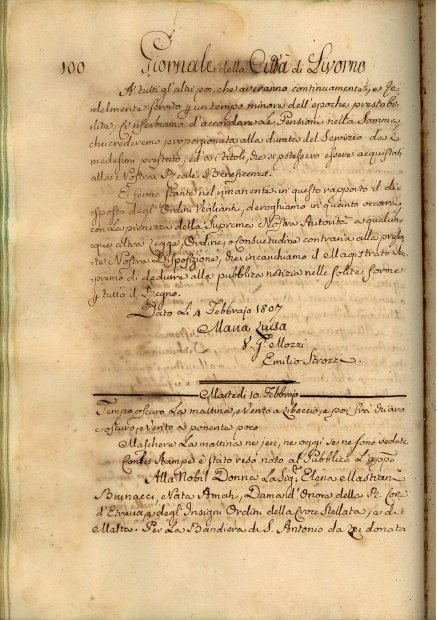 100 Giornale della Città di Livorno
A tutti gl'altri poi, che averanno continuamente, e fe-
delmente servito p un tempo minore dell'epoche prestabi-
lite, Ci riserbiamo d'accordare le Pensioni nella Somma,
che crederemo proporzionata alla durata del Servizio da i
medesimi prestato, ed a i titoli, che si potessero essere acquistati
alla Nostra Reale Beneficenza.
E ferma stante nel rimanente in questo rapporto il di-
sposto degl'Ordini Veglianti, deroghiamo in quanto occorra,
con la pienezza della Suprema Nostra Autorità a qualun-
que altra Legge, Ordine, o Consuetudine contraria alla presen-
te Nostra Disposizione, che incarichiamo il Magistrato Su-
premo di dedurre alla pubblica notizia nelle solite forme
p tutto il Regno.
Dato li 4 Febbrajo 1807
Maria Luisa
V. G. Mozzi
Emilio Strozzi.
Martedì 10. Febbrajo
Tempo oscuro la mattina, e Vento a Libeccio, e poi frà chiaro
e oscuro, e Vento a ponente poco
Maschere la mattina ne jeri, ne oggi se ne sono vedute
Con le stampe è stato reso noto al Pubblico L'appo
Alla Nobil Donna la Sig. Elena Mastiani
Brunacci, e Nata Amati, Dama d'Onore della R. Corte
d'Etruria, e degl'Insigni Ordini della Croce Stellata, e di
Malta. Per La Bandiera di S. Antonio da Lei donata